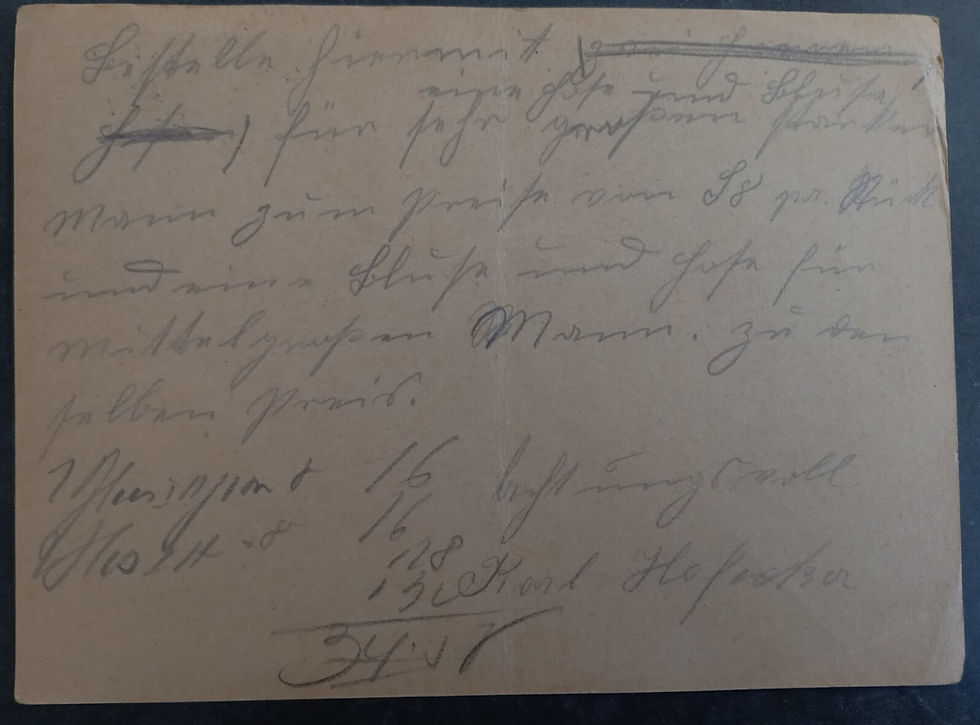 Bestelle hiermit zwei Herren
eine Hose und Bluse
Hosen) für sehr großen starken
Mann zum Preise von S8 pr. Stück
und eine Bluse und Hose für
mittelgroßen Mann. zu den
selben Preis.
16 Achtungsvoll
16
128
Karl
34.57